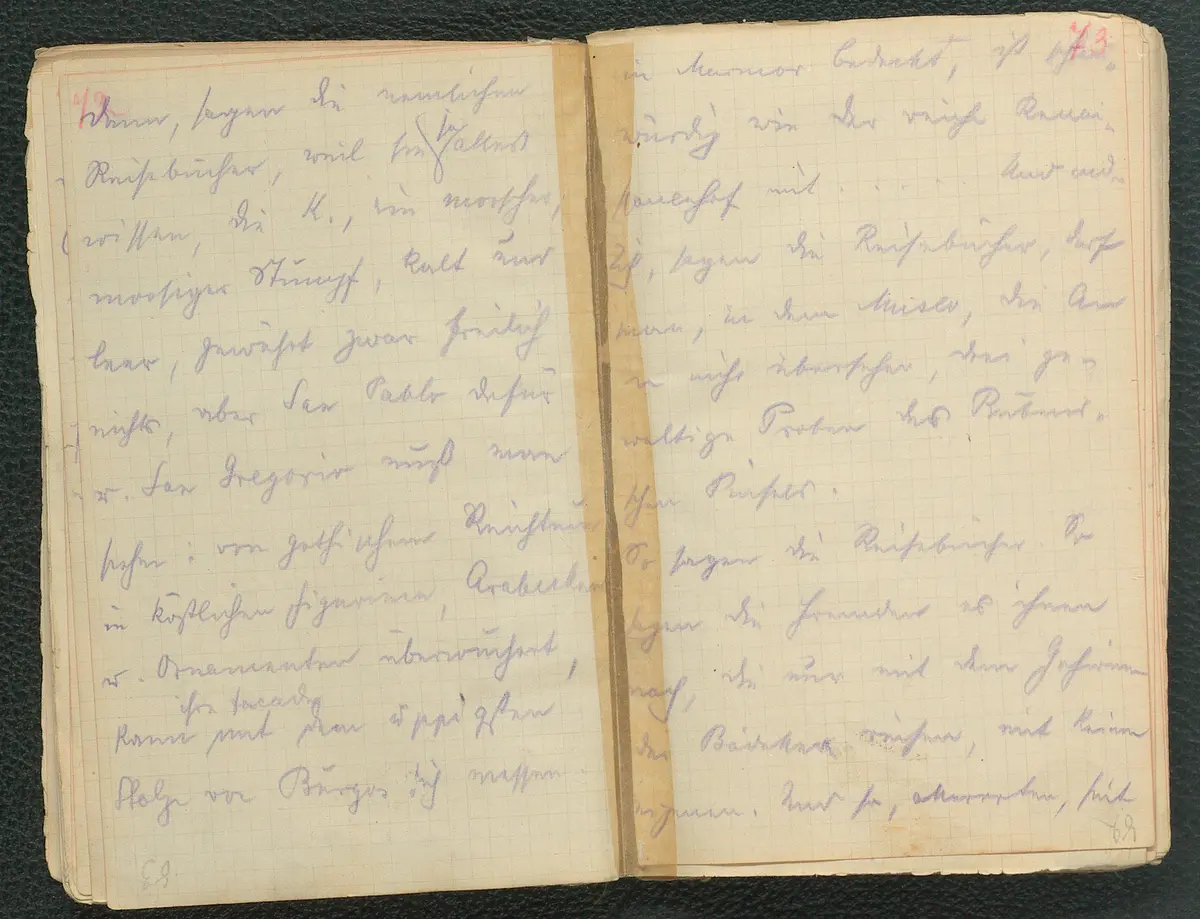 72
Denn, sagen die nemlichen
Reisebücher, weil sie ja alles
wissen, die K., ein morscher,
moosiger Stumpf, kalt und
leer, gewährt zwar freilich
nichts, aber San Pablo dafür
u. San Gregorio muß man
sehen: von gothischem Reichtum
in köstlichen Figurinen, Arabesken
u. Ornamenten überwuchert,
ihre Facade
kann mit dem üppigsten
Stolze von Burgos sich messen.
73
in Marmor bedeckt, ist sehens-
würdig wie der reiche Renai-
sancehof mit . . . . Und end-
lich, sagen die Reisebücher, darf
man, in dem Museo, die
nicht übersehen, drei ge-
waltige Proben des Rubens-
schen Pinsels.
So sagen die Reisebücher. So
sagen die Fremden es ihnen
nach, die nur mit dem Gehirne
des Bädeker reisen, mit keinem
eigenen. Und so, seit